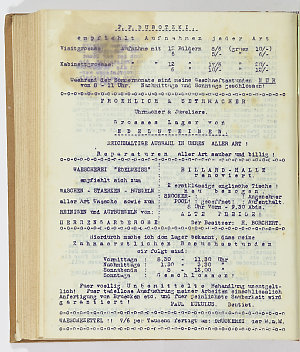 P.P. DUBOTZKI.
empfiehlt Aufnahmen jeder Art
Visitgroesse: Aufnahme mit 12 Bildern
Kabinettgroesse: 12
Waehrend der Sommermonate sind meine Geschaeftsstunden NUR
von 8 - 11 Uhr. Nachmittags und Sonntags geschlossen!
FROEHLICH & ZEYRMACHER
Uhrmacher & Juweliere.
Grosses Lager von
EDELSTEINEN.
REICHHALTIGE AUSWAHL IN UHREN ALLER ART !
Reparaturen aller Art sauber und billig !
WAESCHEREI "EDELWEISS"
empfiehlt sich zum
WASCHEN - STAERKEN - BUEGELN
aller Art Waesche sowie zum
REINIGEN und AUFBUEGELN von:
HERRENGARDEROBE
BILLARD-HALLE
renoviert
2 erstklassige englische Tische !
Neu besetzt !
SNOOKER-
POOL
geoeffnet
8 Uhr Vorm - 9.30 Abds.
ALTE PREISE !
Der Besitzer: E. BORCHERT.
Hierdurch mache ich dem Lager bekannt, dass meine
Zahnaerztlichen Besuchsstunden
wie folgt sind:
Vormittags 8.30 - 11.30 Uhr
Nachmittags 1.30 -
Sonnabends 8 - 12.00
Sonntags Geschlossen!
Fuer voellig Unbemittelte Behandlung unentgelt-
lich! Fuer tadellose Ausfuehrung meiner Arbeiten einschliesslich
Anfertigung von Bruecken etc. und fuer peinlichste Sauberkeit wird
garantiert!
PAUL Dentist.
WASCHZETTEL : 7/6 per Tausend fertigt an: DRUCKEREI der K.u.W.